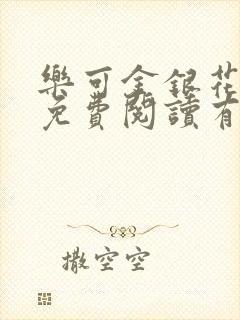 樂可金銀花
免費閱讀有
撒空空